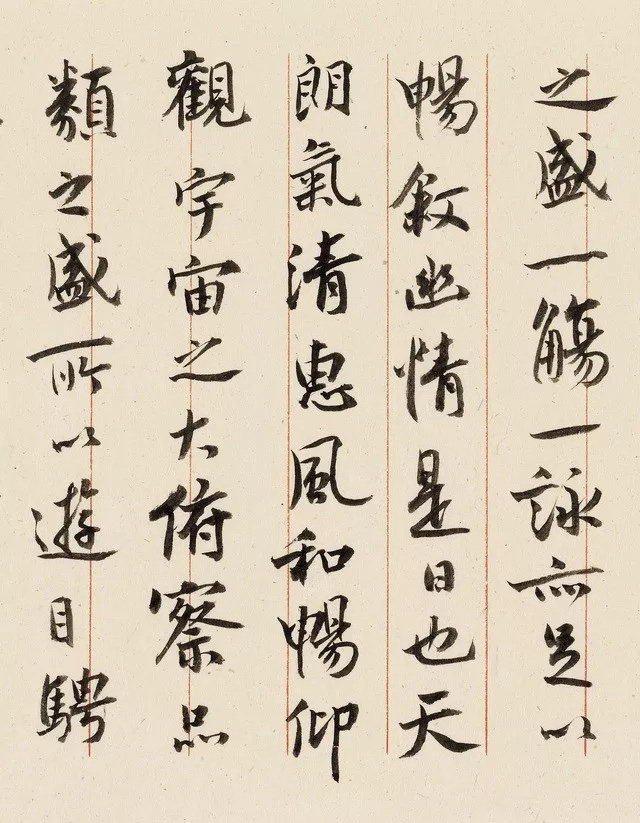 之盛一觴一詠亦足以
暢敘幽情是日也天
朗氣清惠風和暢仰
觀宇宙之大俯察品
類之盛所以遊目騁